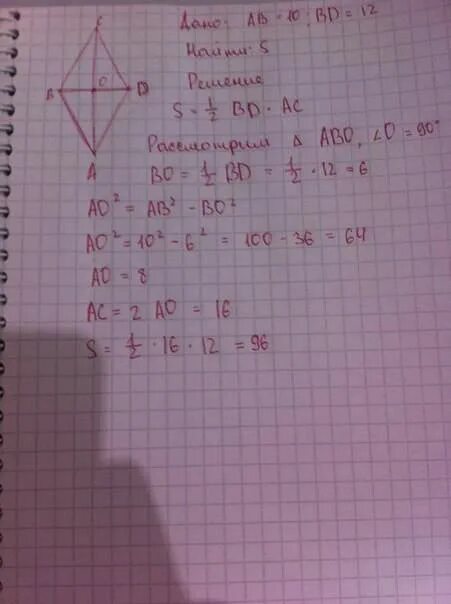 C
Дано: AB = 10; BD = 12
Найти: S
B O D
Решение
S = 1/2 BD · AC
Рассмотрим Δ ABO, ∠O = 90°
A
BO = 1/2 BD = 1/2 · 12 = 6
AO² = AB² - BO²
AO² = 10² - 6² = 100 - 36 = 64
AO = 8
AC = 2 AO = 16
S = 1/2 · 16 · 12 = 96